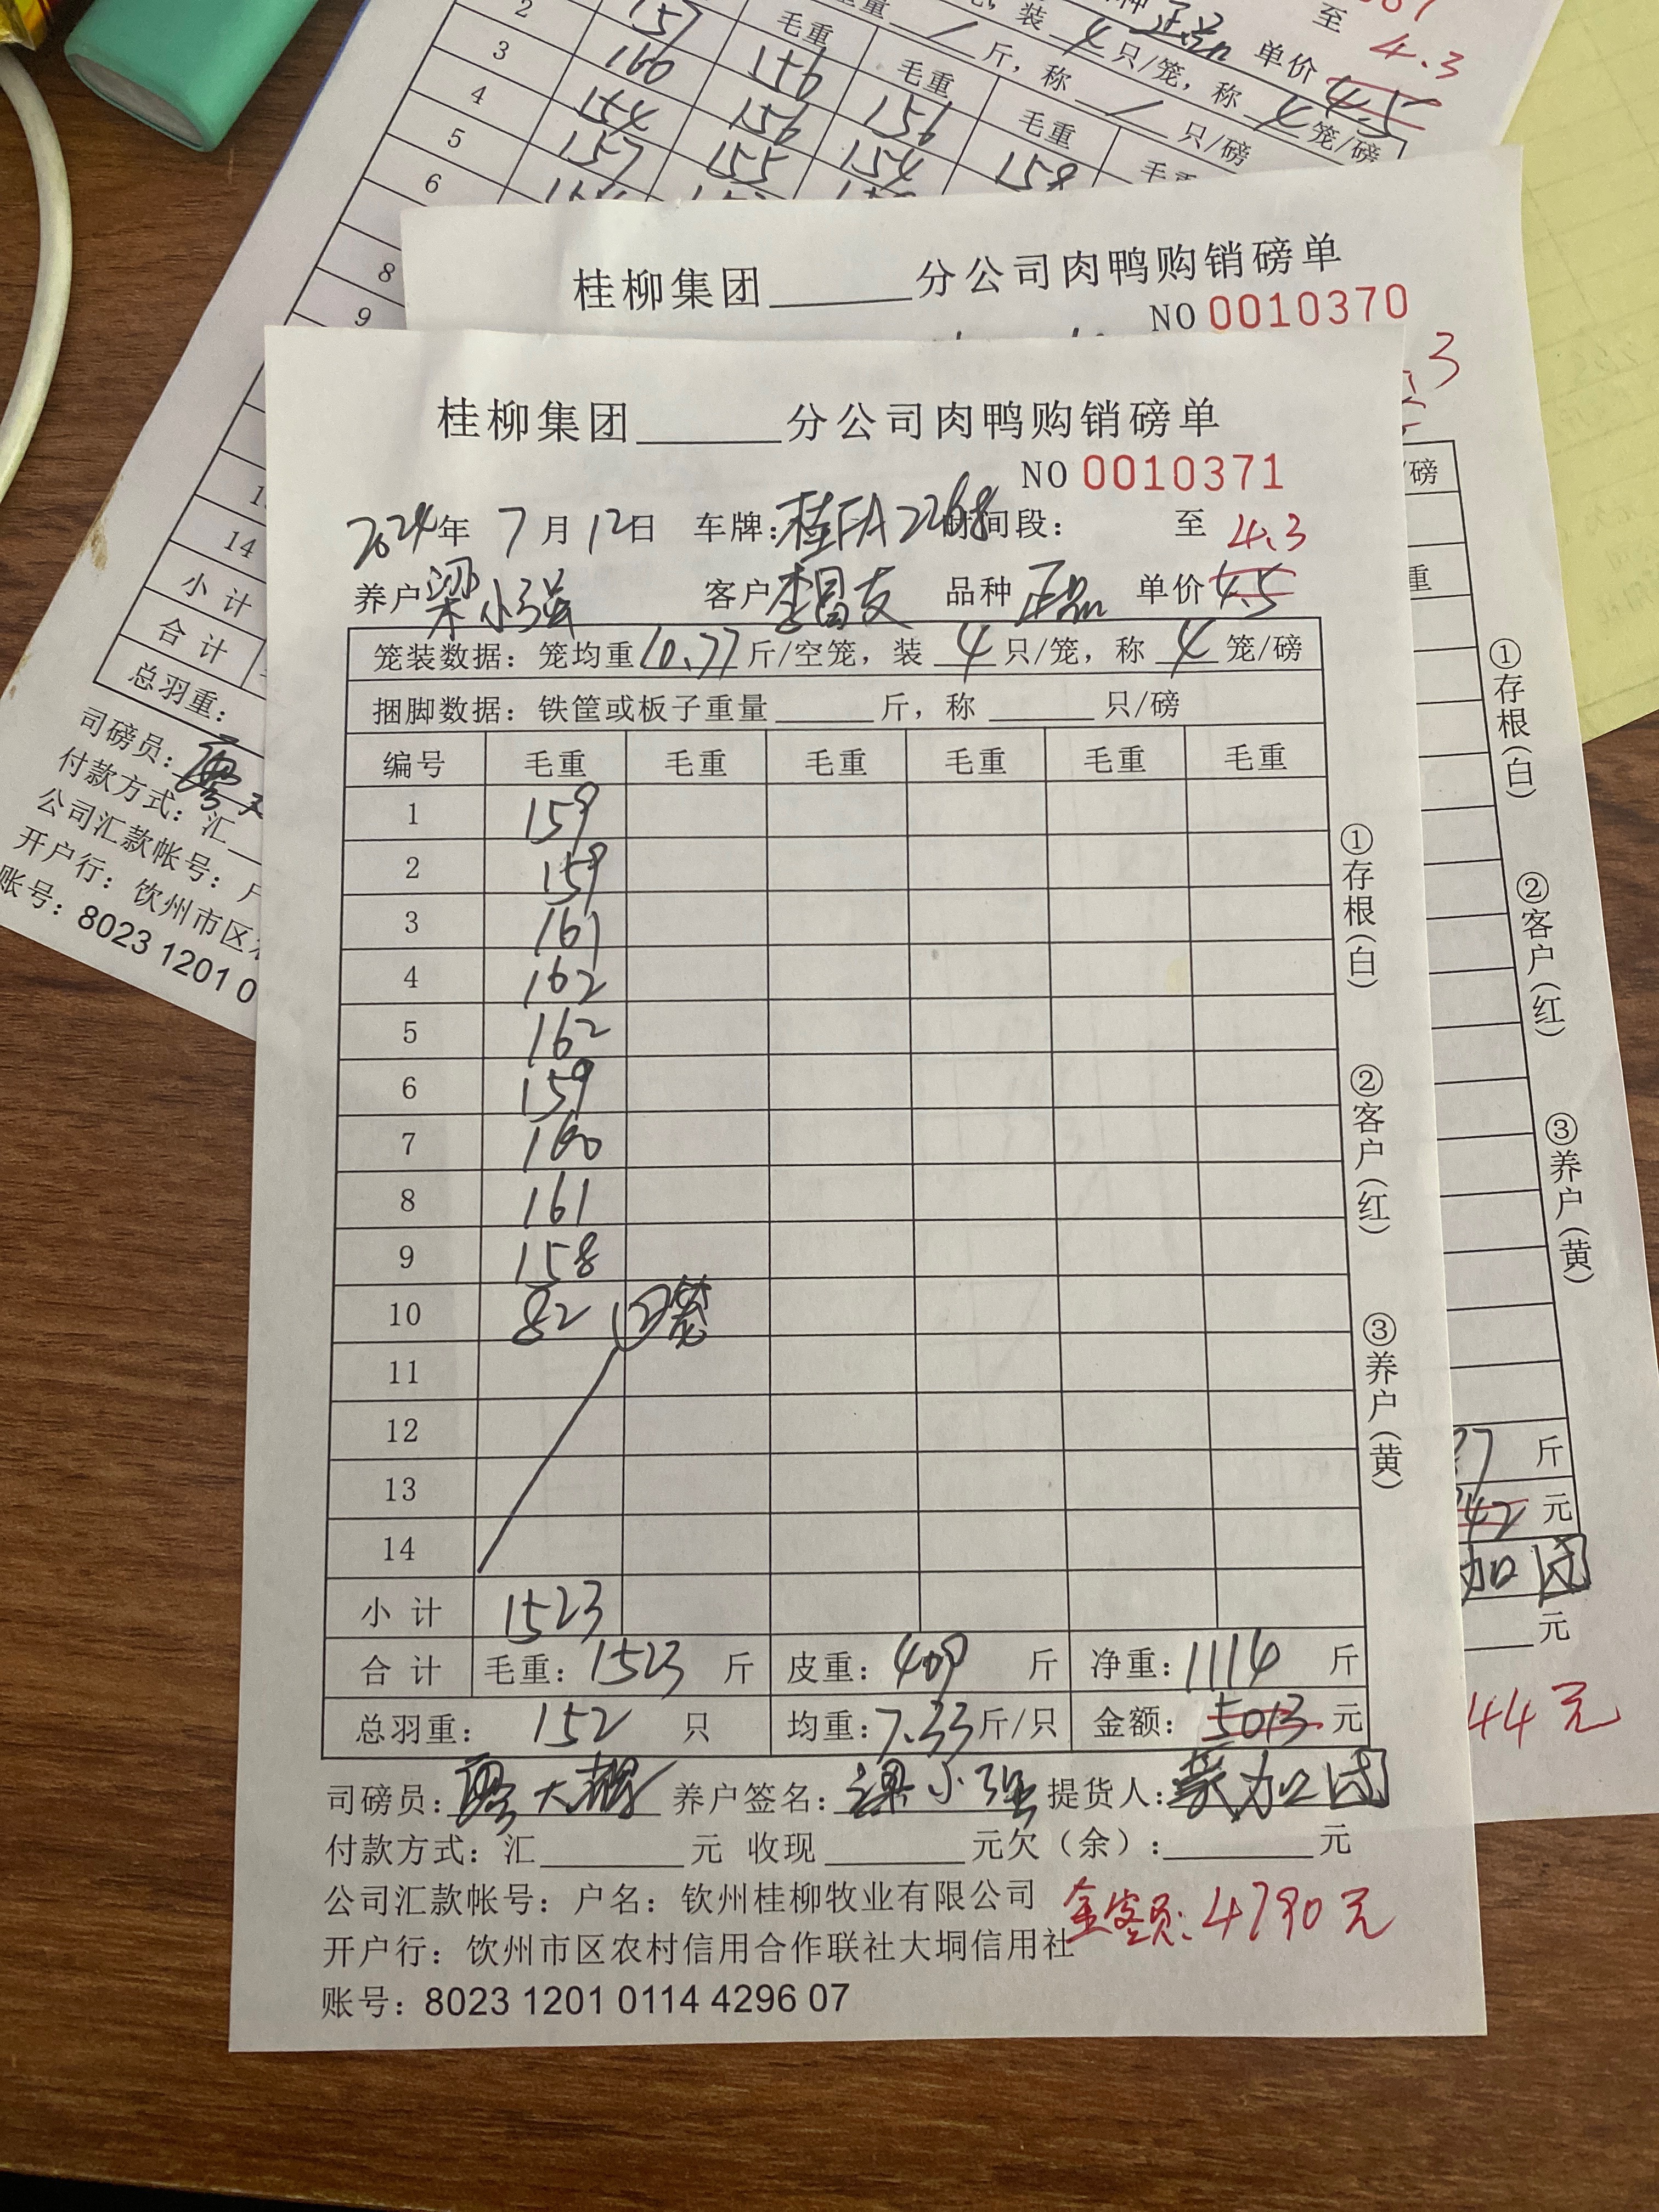 2 157
3 166 156
4 154 156 156
5 157 155 154 158
6
8
9
14
小计
合计
总羽重:
司磅员:
付款方式: 汇
公司汇款帐号: 户
开户行: 钦州市区农
账号: 8023 1201 0
毛重 毛重 毛重
斤, 称 / 只/磅
装 4 只/笼, 称 4 笼/磅
正品 单价 4.5
至 4.3
桂柳集团______分公司肉鸭购销磅单
NO 0010370
桂柳集团______分公司肉鸭购销磅单
NO 0010371
2024年 7月12日 车牌:桂FA2268 时间段: 至 4.3
养户 梁小强 客户 李昌友 品种 正品 单价 4.5
笼装数据: 笼均重 10.77 斤/空笼, 装 4 只/笼, 称 4 笼/磅
捆脚数据: 铁筐或板子重量______斤, 称______只/磅
编号 毛重 毛重 毛重 毛重 毛重 毛重
1 159
2 159
3 161
4 162
5 162
6 159
7 160
8 161
9 158
10 82 ②笼
11
12
13
14
小计 1523
合计 毛重: 1523 斤 皮重: 409 斤 净重: 1114 斤
总羽重: 152 只 均重: 7.33 斤/只 金额: 5013 元
司磅员: 养户签名: 梁小强 提货人: 加团
付款方式: 汇______元 收现______元欠(余):______元
公司汇款帐号: 户名: 钦州桂柳牧业有限公司
金额: 4790元
开户行: 钦州市区农村信用合作联社大垌信用社
账号: 8023 1201 0114 4296 07
①存根(白) ②客户(红) ③养户(黄)
①存根(白) ②客户(红) ③养户(黄)
/磅
重
斤
42 元
加团
元
44元